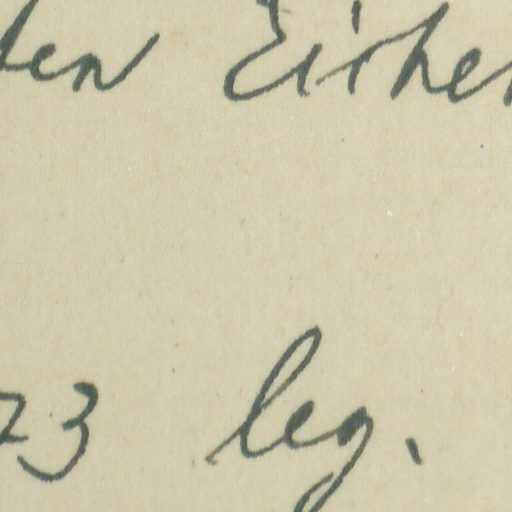 ten Eichen
73 leg.